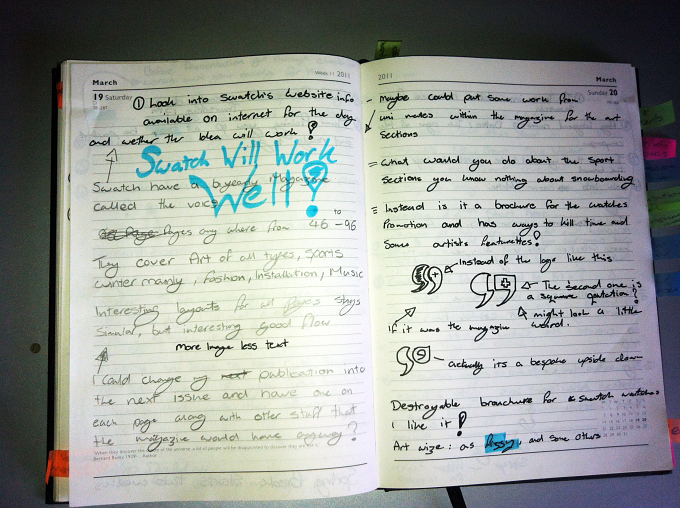 March
Week 11 2011
19 Saturday
① Look into Swatch's website info
available on internet for the day
and wether the Idea will work!
Swatch Will Work
Well!
Swatch have a byearly Magazine
called the voice
to
Pages any where from 46 - 96
They cover Art of all types, sports
winter mainly, Fashion, Installation, Music
Interesting layouts for all pages
Simular, but interesting good flow
More Image less text
I could change publication into
the next Issue and have one on
each page along with other stuff that
the magazine would have anyway?
2011
March
Sunday 20
- Maybe could put some work from
uni mates within the magazine for the art
sections
= What would you do about the sport
sections you know nothing about snowboarding
≡ Instead is it a brochure for the watches
Promotion and has ways to kill time and
Some artists featurettes!
instead of the logo like this
The second one is
a square quotation?
might look a little
weird.
If it was the magazine
actually its a bespoke upside down
Destroyable brouchure for watches
I like it!
Art wize: as and some others